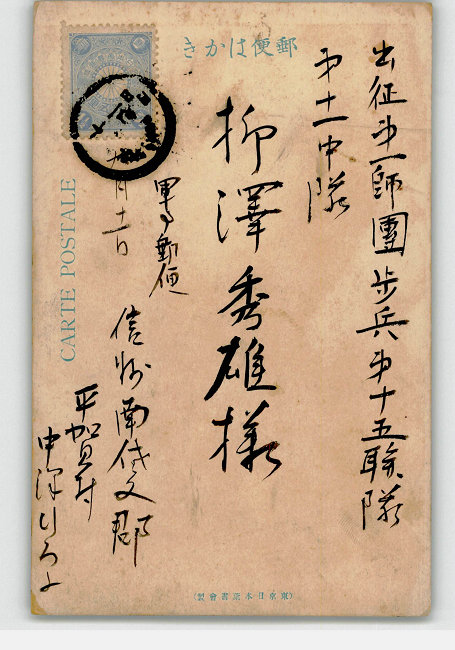 郵便はかき
出征第一師團歩兵第十五聯隊
第十一中隊
柳澤秀雄様
軍事郵便
月十一日
信州南佐久郡
平賀村
中澤
CARTE POSTALE
(東京日本葉書會製)